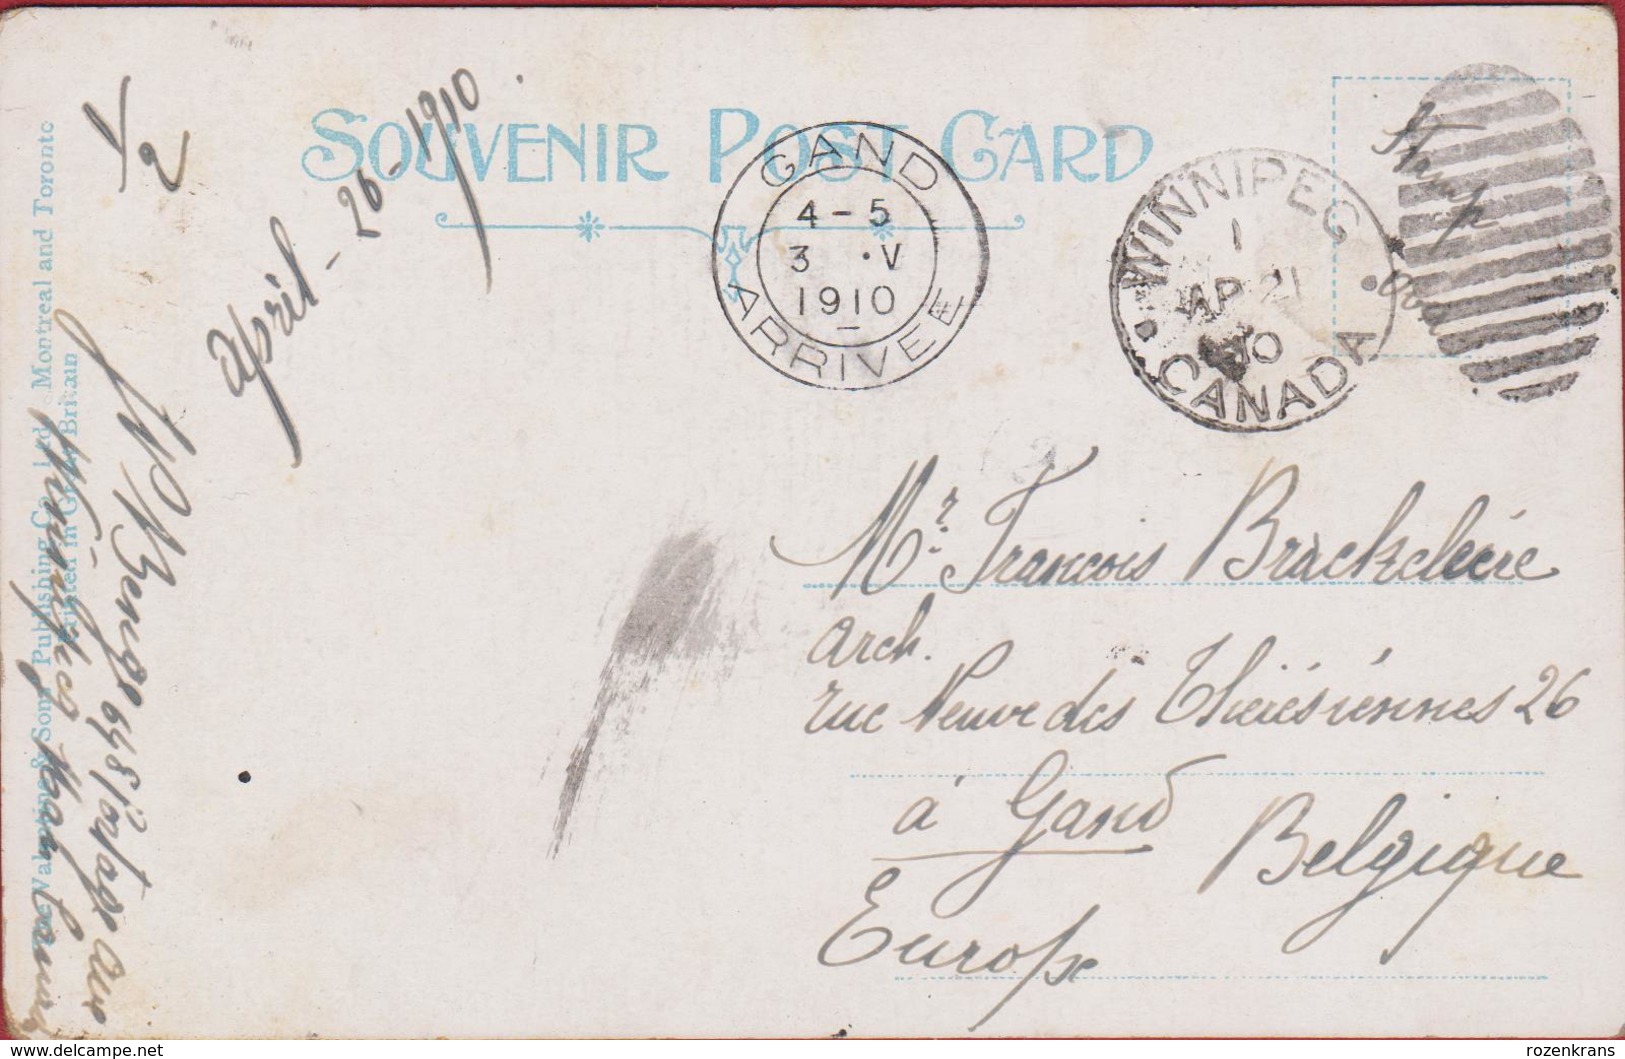 SOUVENIR POST CARD
1/2
April - 26 - 1910
GAND
4 - 5
3 · V
1910
ARRIVEE
WINNIPEG
1
AP 21
10
CANADA
Stamp
Mr. Francois
arch.
rue Neuve des Thérésiennes 26
à Gand
Belgique
Europe
648 portage ave
Winnipeg Man Canada
The Valentine & Sons Publishing Co. Ltd. Montreal and Toronto
Printed in Great Britain
www.delcampe.net
rozenkrans